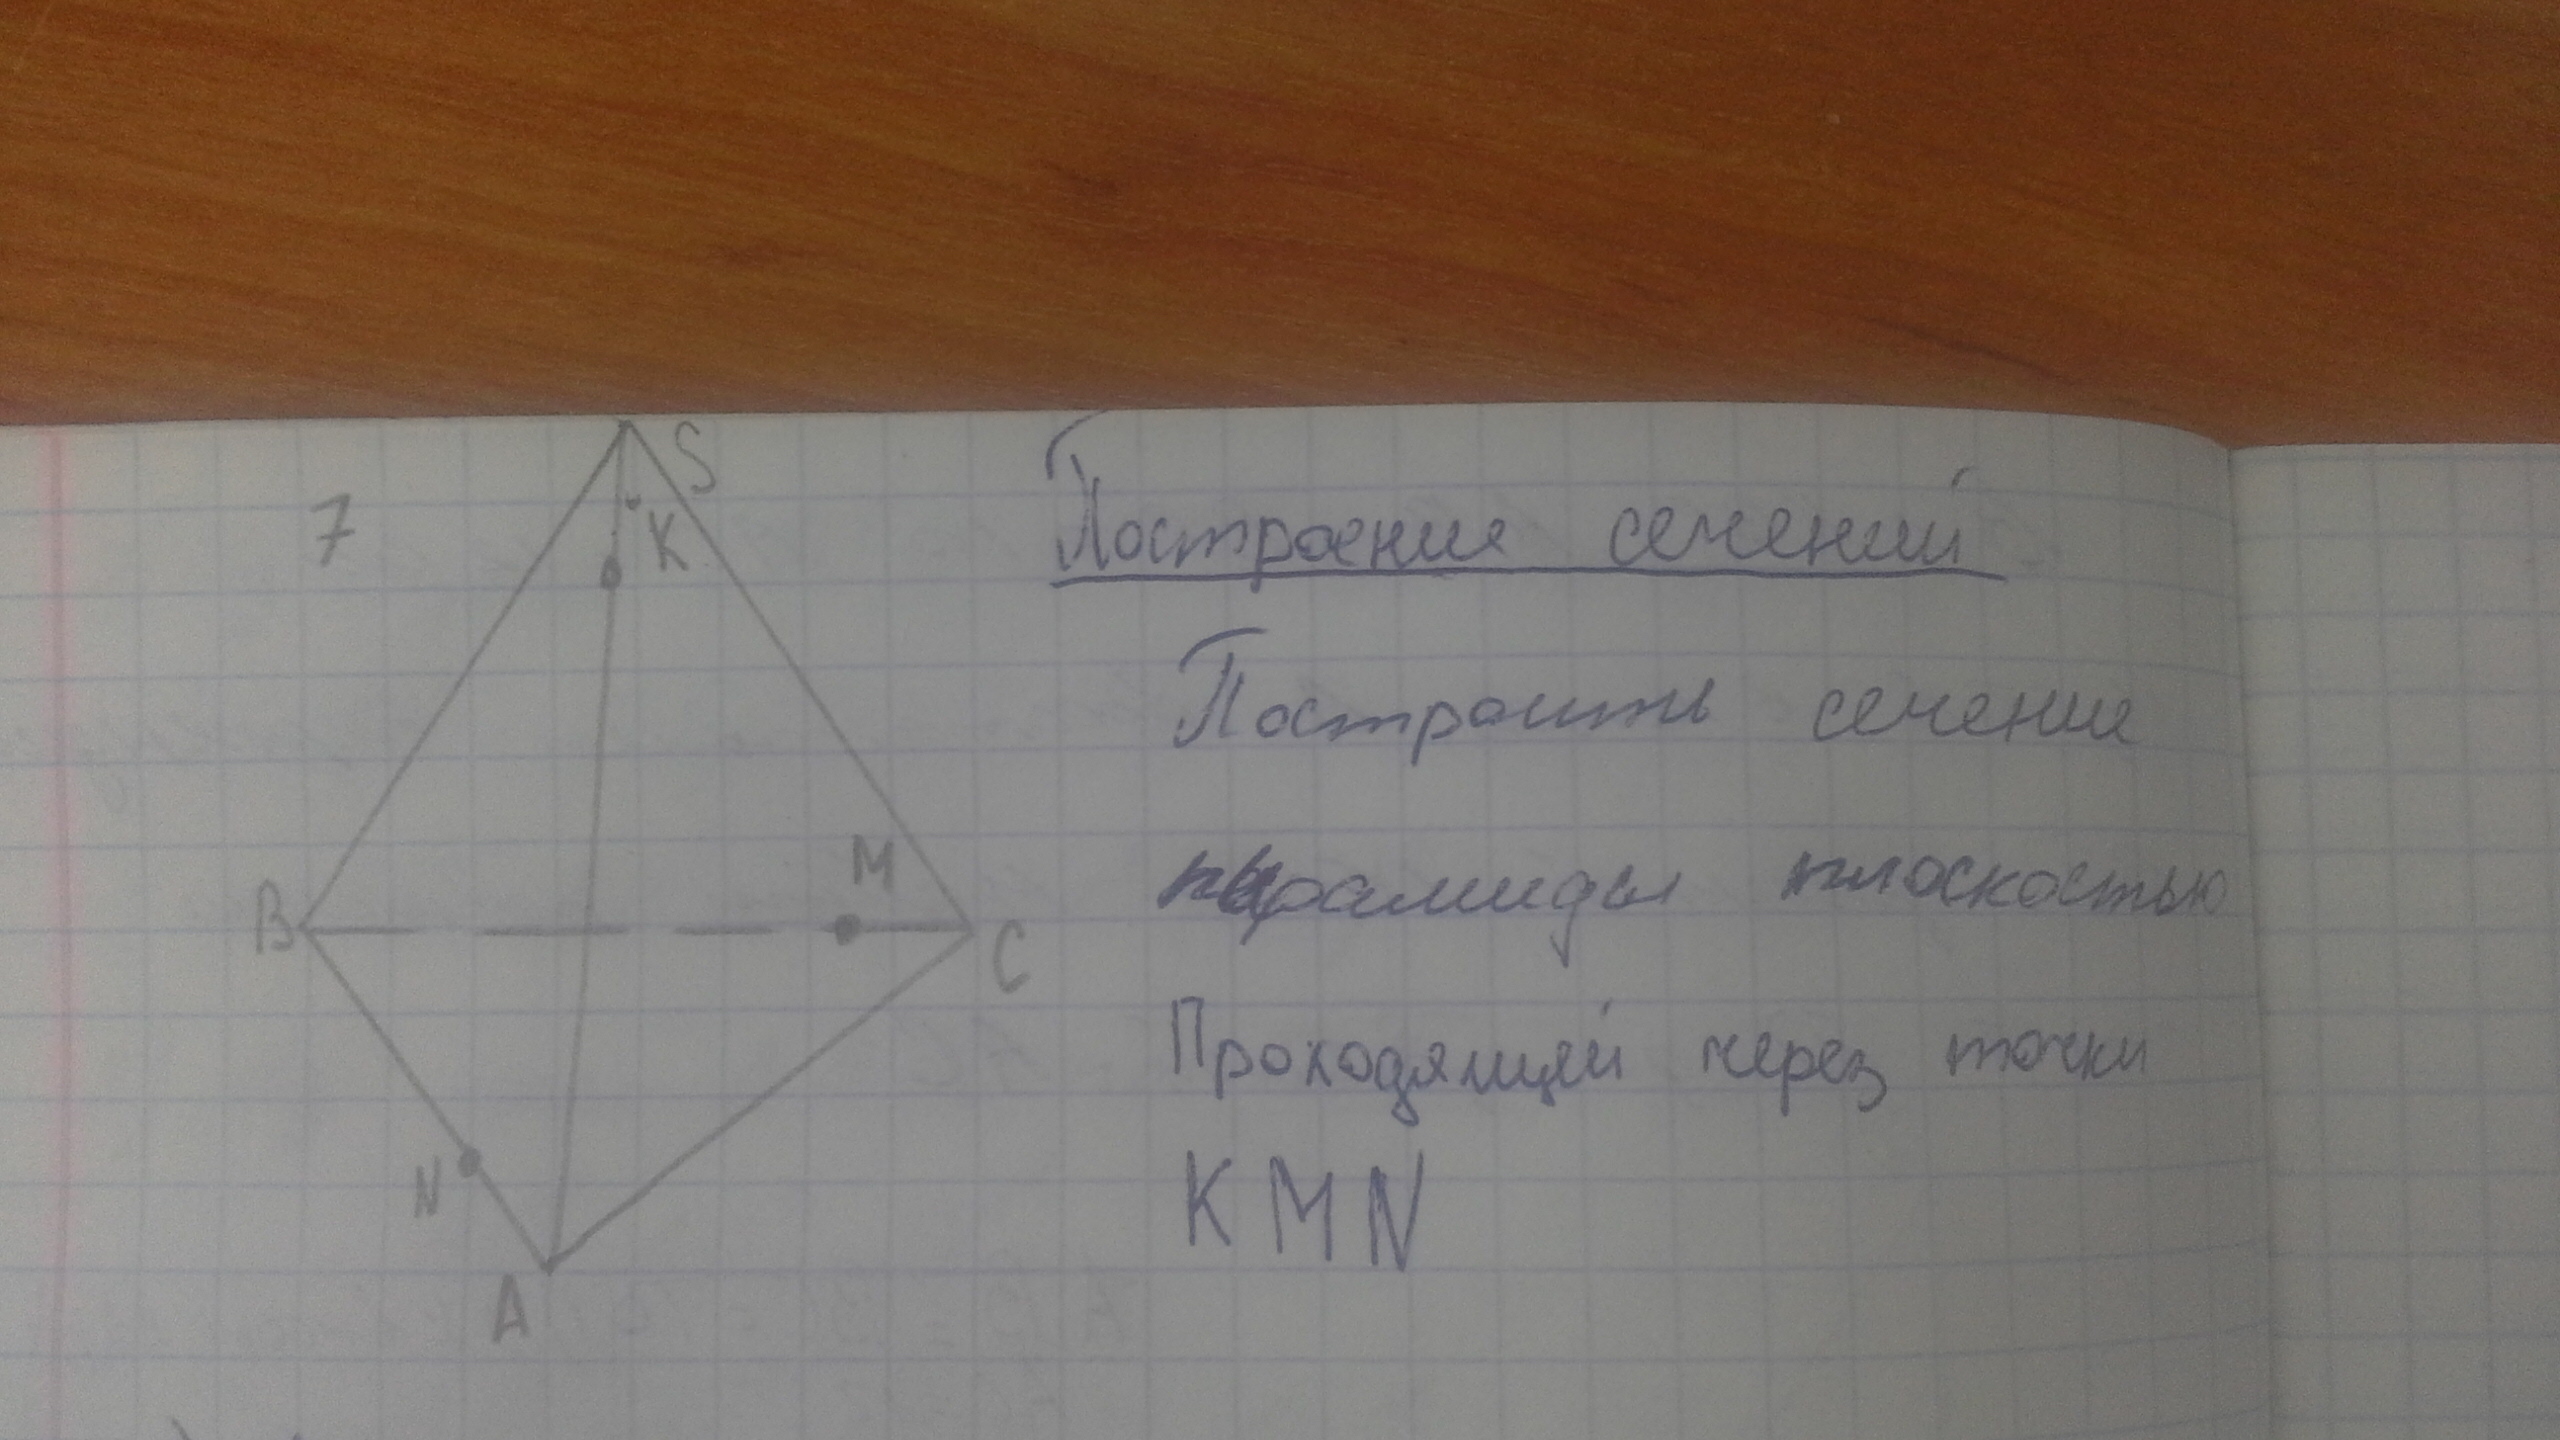 7
S
K
M
B
C
N
A
Построение сечений
Построить сечение
пирамиды плоскостью
Проходящей через точки
KMN